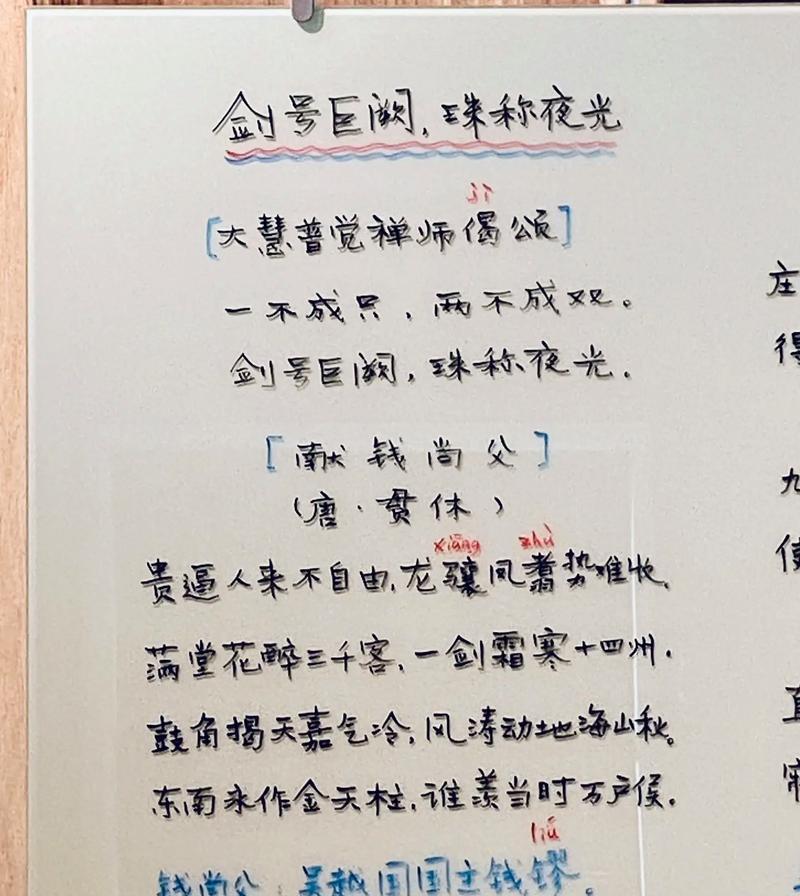 剑号巨阙，珠称夜光
jì
[大慧普觉禅师偈颂]
一不成只，两不成双。
剑号巨阙，珠称夜光.
[献钱尚父]
(唐·贯休)
xiāng zhù
贵逼人来不自由，龙骧凤翥势难收.
满堂花醉三千客，一剑霜寒十四州.
鼓角揭天嘉气冷，风涛动地海山秋。
东南永作金天柱，谁羡当时万户侯.
liú
钱尚父：吴越国国主钱镠。
庄
得
九
使